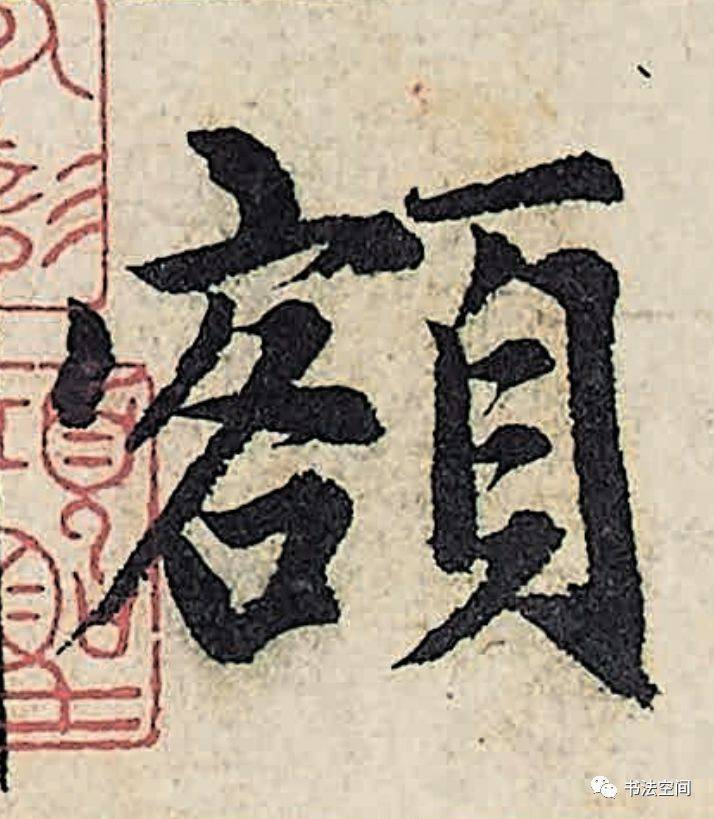 額
书法空间